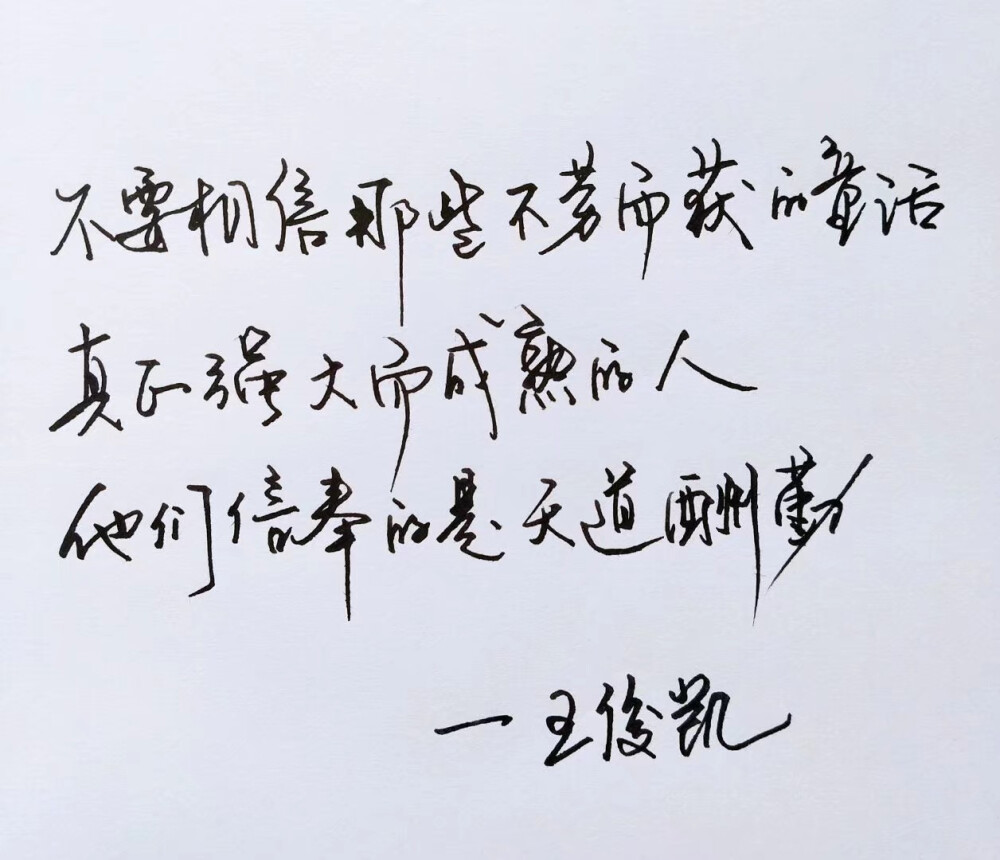 不要相信那些不劳而获的童话
真正强大而成熟的人
他们信奉的是天道酬勤
一王俊凯